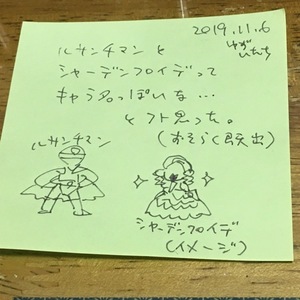 2019.11.6
ルサンチマンと
シャーデンフロイデって
キャラ名っぽいな…
とフト思った。
(おそらく既出)
ルサンチマン
シャーデンフロイデ
(イメージ)